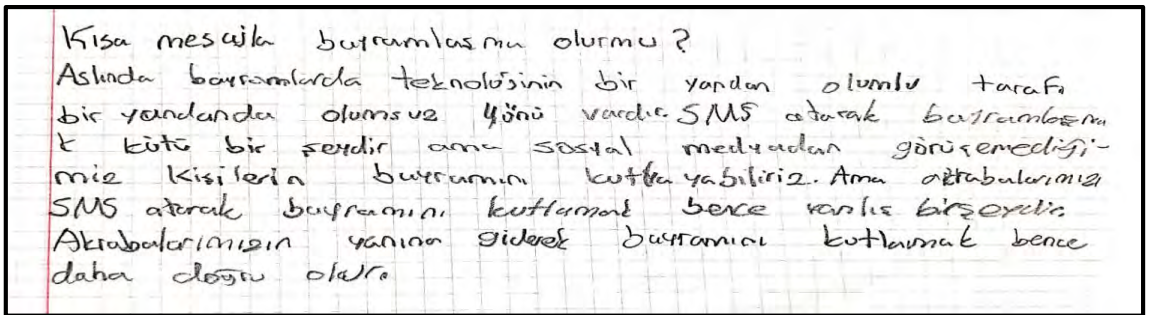 Kısa mesajla bayramlaşma olurmu?
Aslında bayramlarda teknolojinin bir yandan olumlu tarafı
bir yandanda olumsuz yönü vardır. SMS atarak bayramlaşma
k kötü bir şeydir ama sosyal medyadan görüşemediği-
miz kişilerin bayramını kutlayabiliriz. Ama akrabalarımızı
SMS atarak bayramını kutlamak bence yanlış birşeydir.
Akrabalarımızın yanına giderek bayramını kutlamak bence
daha doğru olur.